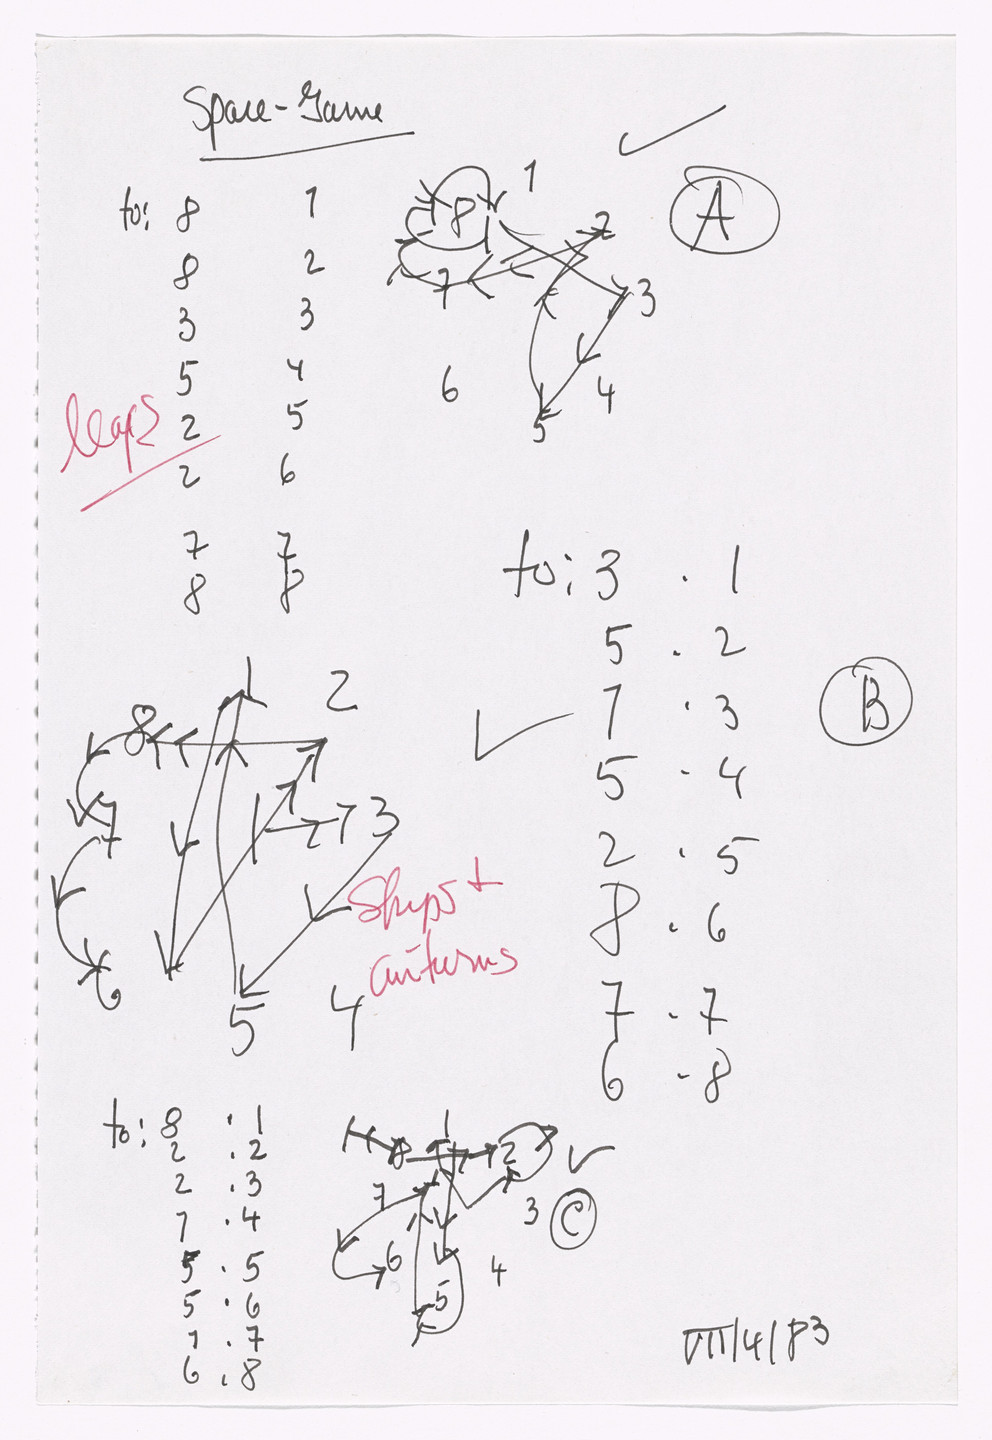 Space-Game
A
to: 8 1
8 2
3 3
5 4
leaps
2 5
2 6
7 7
8 8
1
8
2
7
3
6
4
5
to: 3 . 1
5 . 2
1 . 3
5 . 4
2 . 5
8 . 6
7 . 7
6 . 8
B
1
2
8
7
3
Skips +
6
5
4
to: 8 . 1
2 . 2
2 . 3
1 . 4
5 . 5
5 . 6
1 . 7
6 . 8
1
8
2
7
3
C
6
4
5
VII/4/83